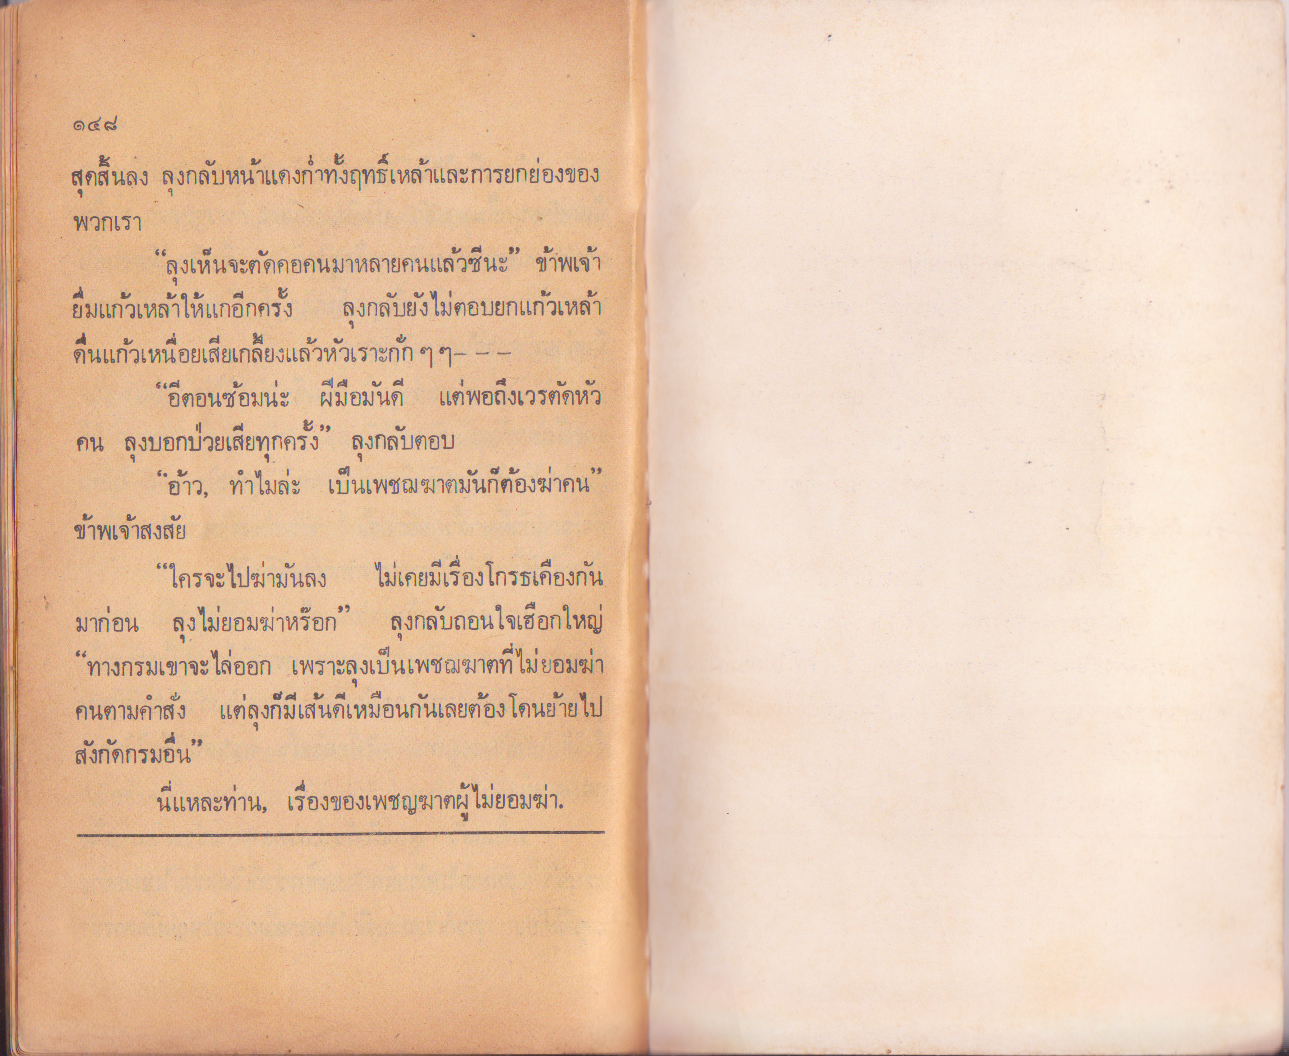 ๑๔๘
สุดสิ้นลง ลุงกลับหน้าแดงก่ำทั้งฤทธิ์เหล้าและการยกย่องของ
พวกเรา
“ลุงเห็นจะตัดคอคนมาหลายคนแล้วซีนะ” ข้าพเจ้า
ยื่มแก้วเหล้าให้แกอีกครั้ง ลุงกลับยังไม่ตอบยกแก้วเหล้า
ดื่นแก้วเหนื่อยเสียเกลี้ยงแล้วหัวเราะกั่ก ๆ ๆ- - -
“อีตอนซ้อมน่ะ ฝีมือมันดี แต่พอถึงเวรตัดหัว
คน ลุงบอกป่วยเสียทุกครั้ง” ลุงกลับตอบ
“อ้าว, ทำไมล่ะ เป็นเพชฌฆาตมันก็ต้องฆ่าคน”
ข้าพเจ้าสงสัย
“ใครจะไปฆ่ามันลง ไม่เคยมีเรื่องโกรธเคืองกัน
มาก่อน ลุงไม่ยอมฆ่าหร๊อก” ลุงกลับถอนใจเฮือกใหญ่
“ทางกรมเขาจะไล่ออก เพราะลุงเป็นเพชฌฆาตที่ไม่ยอมฆ่า
คนตามคำสั่ง แต่ลุงก็มีเส้นดีเหมือนกันเลยต้องโดนย้ายไป
สังกัดกรมอื่น”
นี่แหละท่าน, เรื่องของเพชญฆาตผู้ไม่ยอมฆ่า.